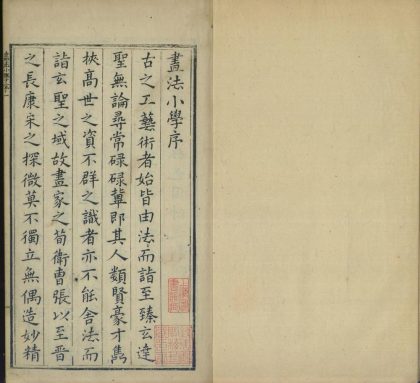 畫法小學序
古之工藝術者始皆由法而詣至臻玄達
聖無論尋常碌碌輩即其人類賢豪才雋
挾高世之資不群之識者亦不能舍法而
詣玄聖之域故畫家之荀衛曹張以至晉
之長康宋之探微莫不獨立無偶造妙精